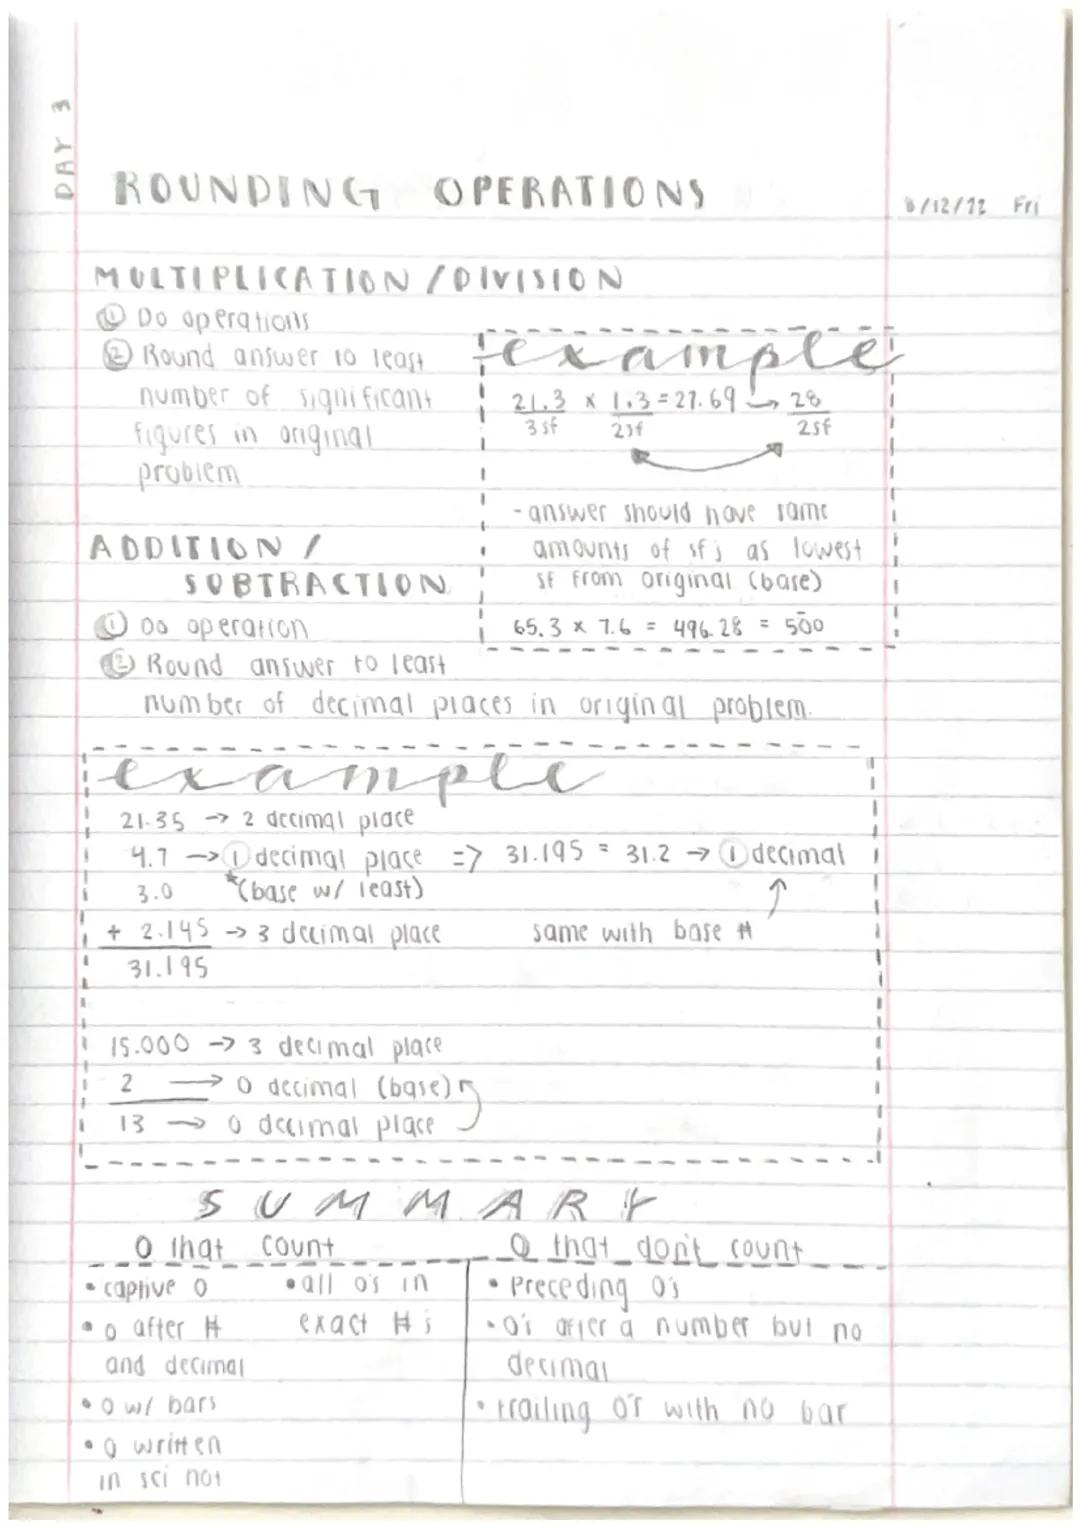 DAY 3
ROUNDING OPERATIONS
8/12/22 Fri
MULTIPLICATION / DIVISION
① Do operations
② Round answer to least
number of significant
figures in original
problem
example
21.3 × 1.3 = 27.69 → 28
3sf 2sf 2sf
- answer should have same
amounts of sfs as lowest
sf from original (base)
65.3 × 7.6 = 496.28 = 50̄0
ADDITION /
SUBTRACTION
① Do operation
② Round answer to least
number of decimal places in original problem.
example
21.35 → 2 decimal place
4.7 → ① decimal place => 31.195 = 31.2 → ① decimal
3.0 *(base w/ least)
+ 2.145 → 3 decimal place same with base #
31.195
15.000 → 3 decimal place
2 → 0 decimal (base)
13 → 0 decimal place
SUMMARY
0 that count
• captive 0
• 0 after #
and decimal
• 0 w/ bars
• 0 written
in sci not
• all 0's in
exact #s
0 that don't count
• Preceding 0's
• 0's after a number but no
decimal
• trailing 0's with no bar